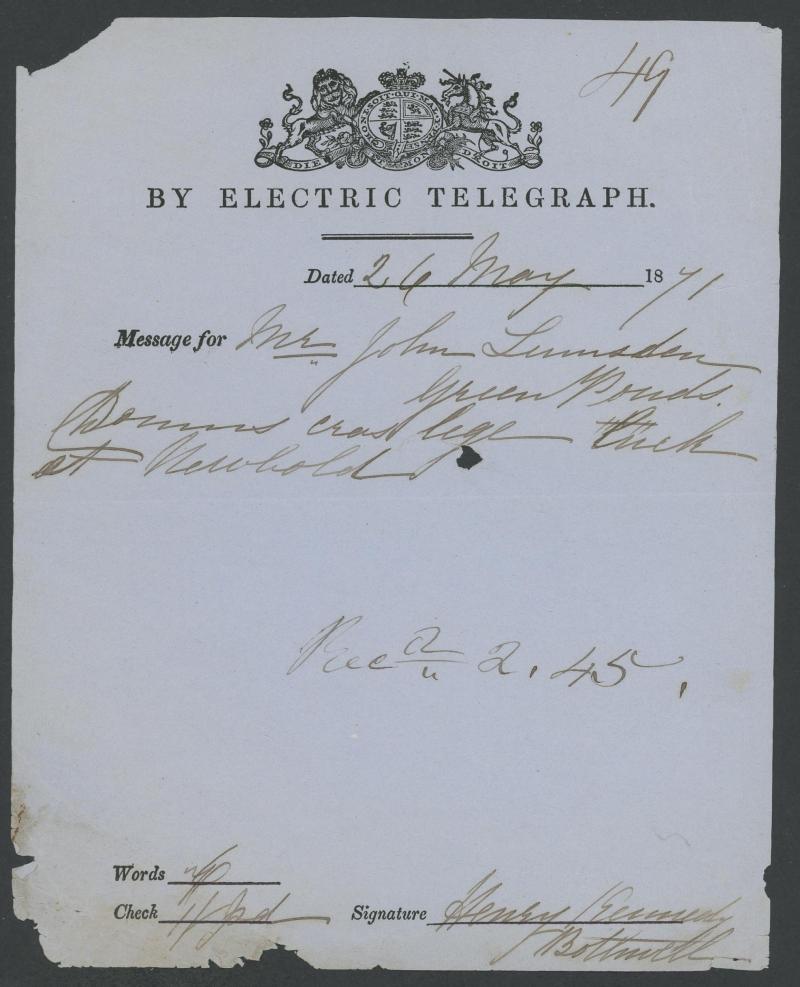 49
HONI SOIT QUI MAL Y PENSE
DIEU ET MON DROIT
BY ELECTRIC TELEGRAPH.
Dated 26 May 1871
Message for Mr John Lumsden
Green Ponds.
cras lege
at Newbold
Recd 2.45.
Words
Check 1/ pd Signature Henry Kennedy
Bothwell